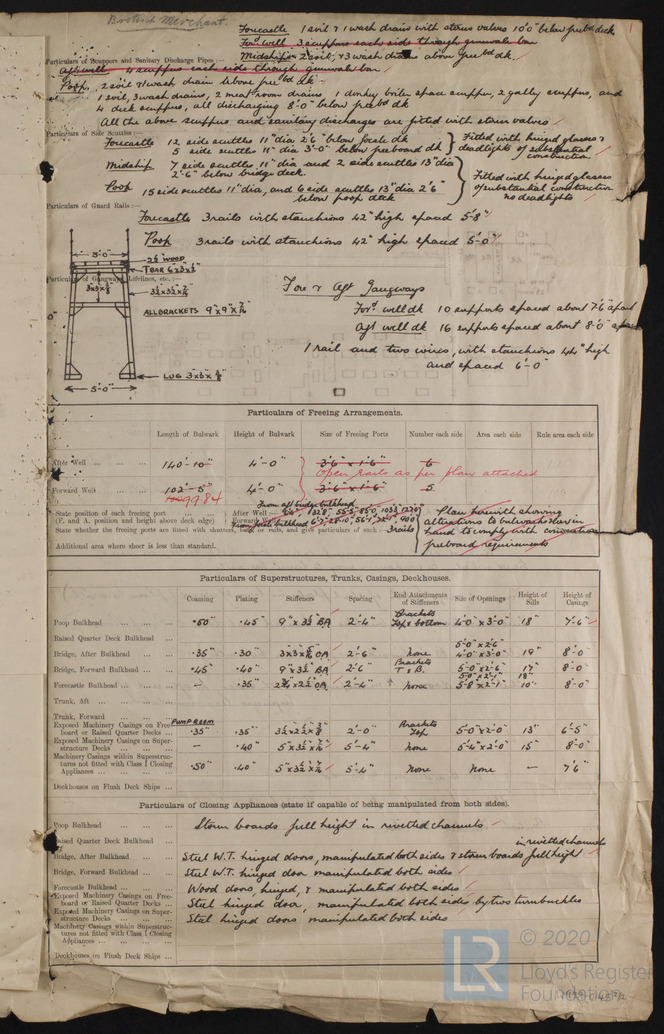 British Merchant.
Forecastle 1 soil & 1 wash drains with storm valves 10'0" below freebd deck
Ford well 3 scuppers each side through gunwale bar
Midship 2 soil, & 3 wash drains above freebd dk.
Particulars of Scuppers and Sanitary Discharge Pipes :—
Aft well 4 scuppers each side through gunwale bar
Poop, 2 soil & wash drain above freebd dk
1 soil, 3 wash drains, 2 mess room drains, 1 donkey boiler space scupper, 2 galley scuppers, and
4 deck scuppers, all discharging 8'0" below freebd dk
All the above scuppers and sanitary discharges are fitted with storm valves
Particulars of Side Scuttles :—
Forecastle 12 side scuttles 11" dia 2'6" below focsle dk
5 side scuttles 11" dia 3'-0" below freeboard dk
Fitted with hinged glasses &
deadlights of substantial
construction
Midship 7 side scuttles 11" dia and 2 side scuttles 13" dia
2'-6" below bridge deck.
Poop 15 side scuttles 11" dia, and 6 side scuttles 13" dia 2'6"
below poop deck
Fitted with hinged glasses
of substantial construction
no deadlights
Particulars of Guard Rails :—
Forecastle 3 rails with stanchions 42" high spaced 5'-8"
Poop 3 rails with stanchions 42" high spaced 5'-0"
3'-0"
2½" WOOD
T BAR 6"x3"x½"
Particulars of Gangways, Lifelines, etc. :—
ALL BRACKETS 9"x9"x7/16"
LUG 3"x3"x3/8"
5'-0"
Fore & Aft Gangways
Ford well dk 10 supports spaced about 7'6" apart
Aft well dk 16 supports spaced about 8'-0" apart
1 rail and two wires, with stanchions 44" high
and spaced 6'-0"
Particulars of Freeing Arrangements.
Length of Bulwark Height of Bulwark Size of Freeing Ports Number each side Area each side Rule area each side
After Well 140'-10" 4'-0" 3'-6" x 1'-6" 6
open rails as per plan attached
Forward Well 102'-5" 4'-0" 3'-6" x 1'-6" 5
99.84
From aft bridge bulkhead
State position of each freeing port After Well
(F. and A. position and height above deck edge) Forward
State whether the freeing ports are fitted with shutters, bars, or rails, and give particulars of such 3 rails
Plan herewith showing
alterations to bulwarks now in
hand to comply with convention
freeboard requirements
Additional area where sheer is less than standard.
Particulars of Superstructures, Trunks, Casings, Deckhouses.
Coaming Plating Stiffeners Spacing End Attachments of Stiffeners Size of Openings Height of Sills Height of Casings
Poop Bulkhead .50" .45" 9" x 3½" BA 2'-4" Brackets Top & bottom 4'-0" x 3'-0" 18" 7'-6"
Raised Quarter Deck Bulkhead
Bridge, After Bulkhead .35" .30" OA 2'-6" None 5'-0" x 2'-6" 4'-0" x 3'-0" 19" 8'-0"
Bridge, Forward Bulkhead .45" .40" 9" x 3½" BA 2'-6" Brackets T & B. 5'-0" x 2'-6" 17" 8'-0"
Forecastle Bulkhead — .35" OA 2'-4" None 5'-8" x 2'-1" 10" 8'-0"
Trunk, Aft
Trunk, Forward
Exposed Machinery Casings on Freeboard or Raised Quarter Decks PUMP ROOM .35" .35" 2'-0" Brackets Top 5'-0" x 2'-0" 13" 6'-5"
Exposed Machinery Casings on Superstructure Decks — .40" 5'-4" None 5'-4" x 2'-0" 15" 8'-0"
Machinery Casings within Superstructures not fitted with Class 1 Closing Appliances .50" .40" 5'-4" None None — 7'6"
Deckhouses on Flush Deck Ships
Particulars of Closing Appliances (state if capable of being manipulated from both sides).
Poop Bulkhead Storm boards full height in rivetted channels
Raised Quarter Deck Bulkhead
in rivetted channels
Bridge, After Bulkhead Steel W.T. hinged doors, manipulated both sides & storm boards full height
Bridge, Forward Bulkhead Steel W.T. hinged door manipulated both sides
Forecastle Bulkhead Wood doors, hinged, & manipulated both sides
Exposed Machinery Casings on Freeboard or Raised Quarter Decks Steel hinged door, manipulated both sides by two turnbuckles
Exposed Machinery Casings on Superstructure Decks Steel hinged doors manipulated both sides
Machinery Casings within Superstructures not fitted with Class 1 Closing Appliances
Deckhouses on Flush Deck Ships
LR
© 2020
Lloyd's Register
Foundation